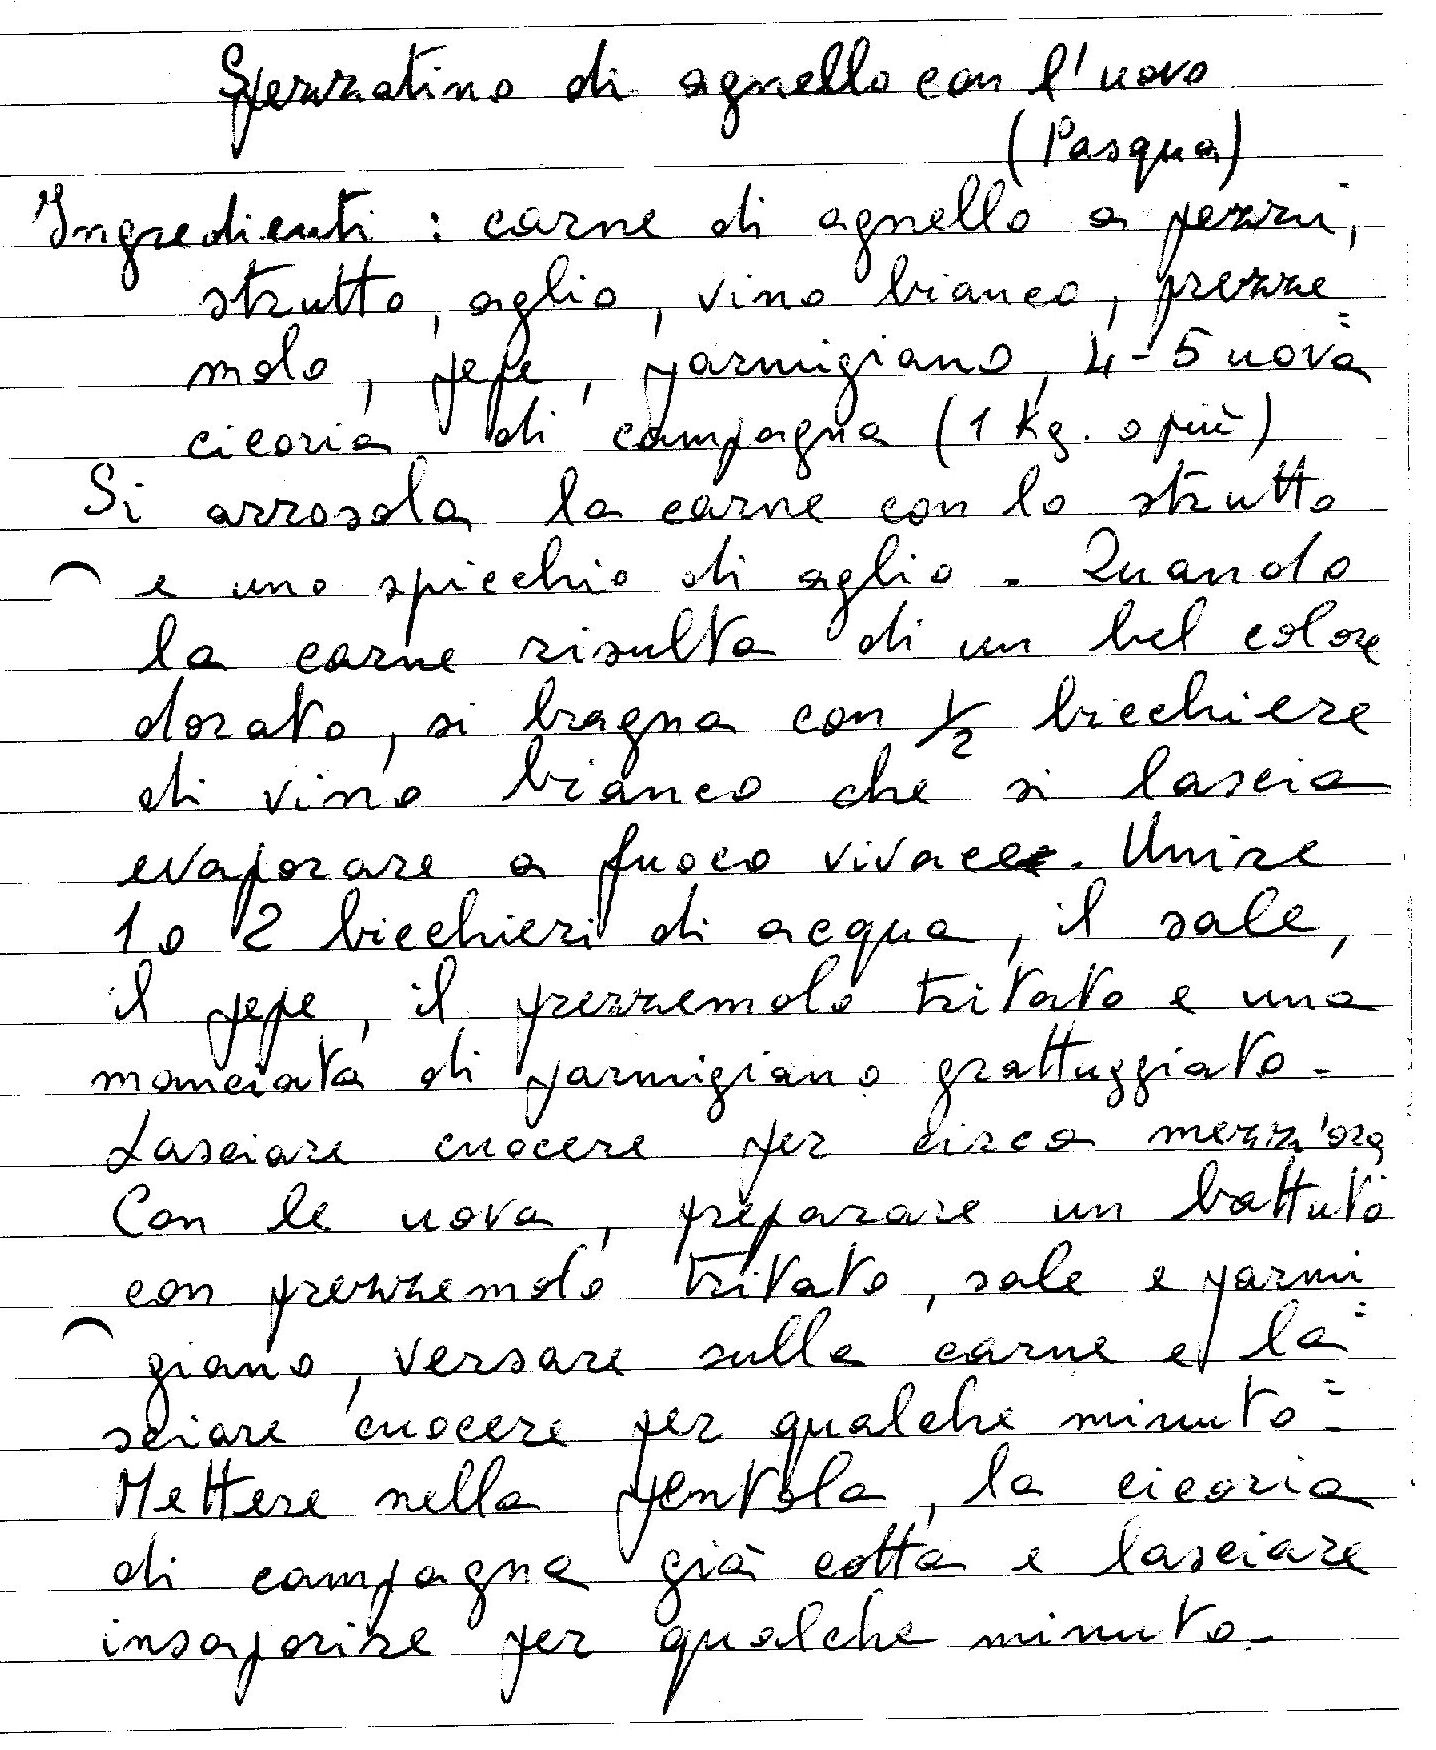 Spezzatino di agnello con l'uovo
(Pasqua)
Ingredienti : carne di agnello a pezzi,
strutto, aglio, vino bianco, prezze
molo, pepe, parmigiano, 4-5 uova=
cicoria di campagna (1 Kg. o più)
Si arrosola la carne con lo strutto
e uno spicchio di aglio. Quando
la carne risulta di un bel colore
dorato, si bragna con 1/2 bicchiere
di vino bianco che si lascia
evaporare a fuoco vivace. Unire
1 o 2 bicchieri di acqua, il sale,
il pepe, il prezzemolo tritato e una
manciata di parmigiano grattuggiato.
Lasciare cuocere per circa mezz'ora
Con le uova, preparare un battuto
con prezzemolo tritato, sale e parmi
giano, versare sulla carne e la=
sciare cuocere per qualche minuto=
Mettere nella pentola, la cicoria
di campagna già cotta e lasciare
insaporire per qualche minuto.